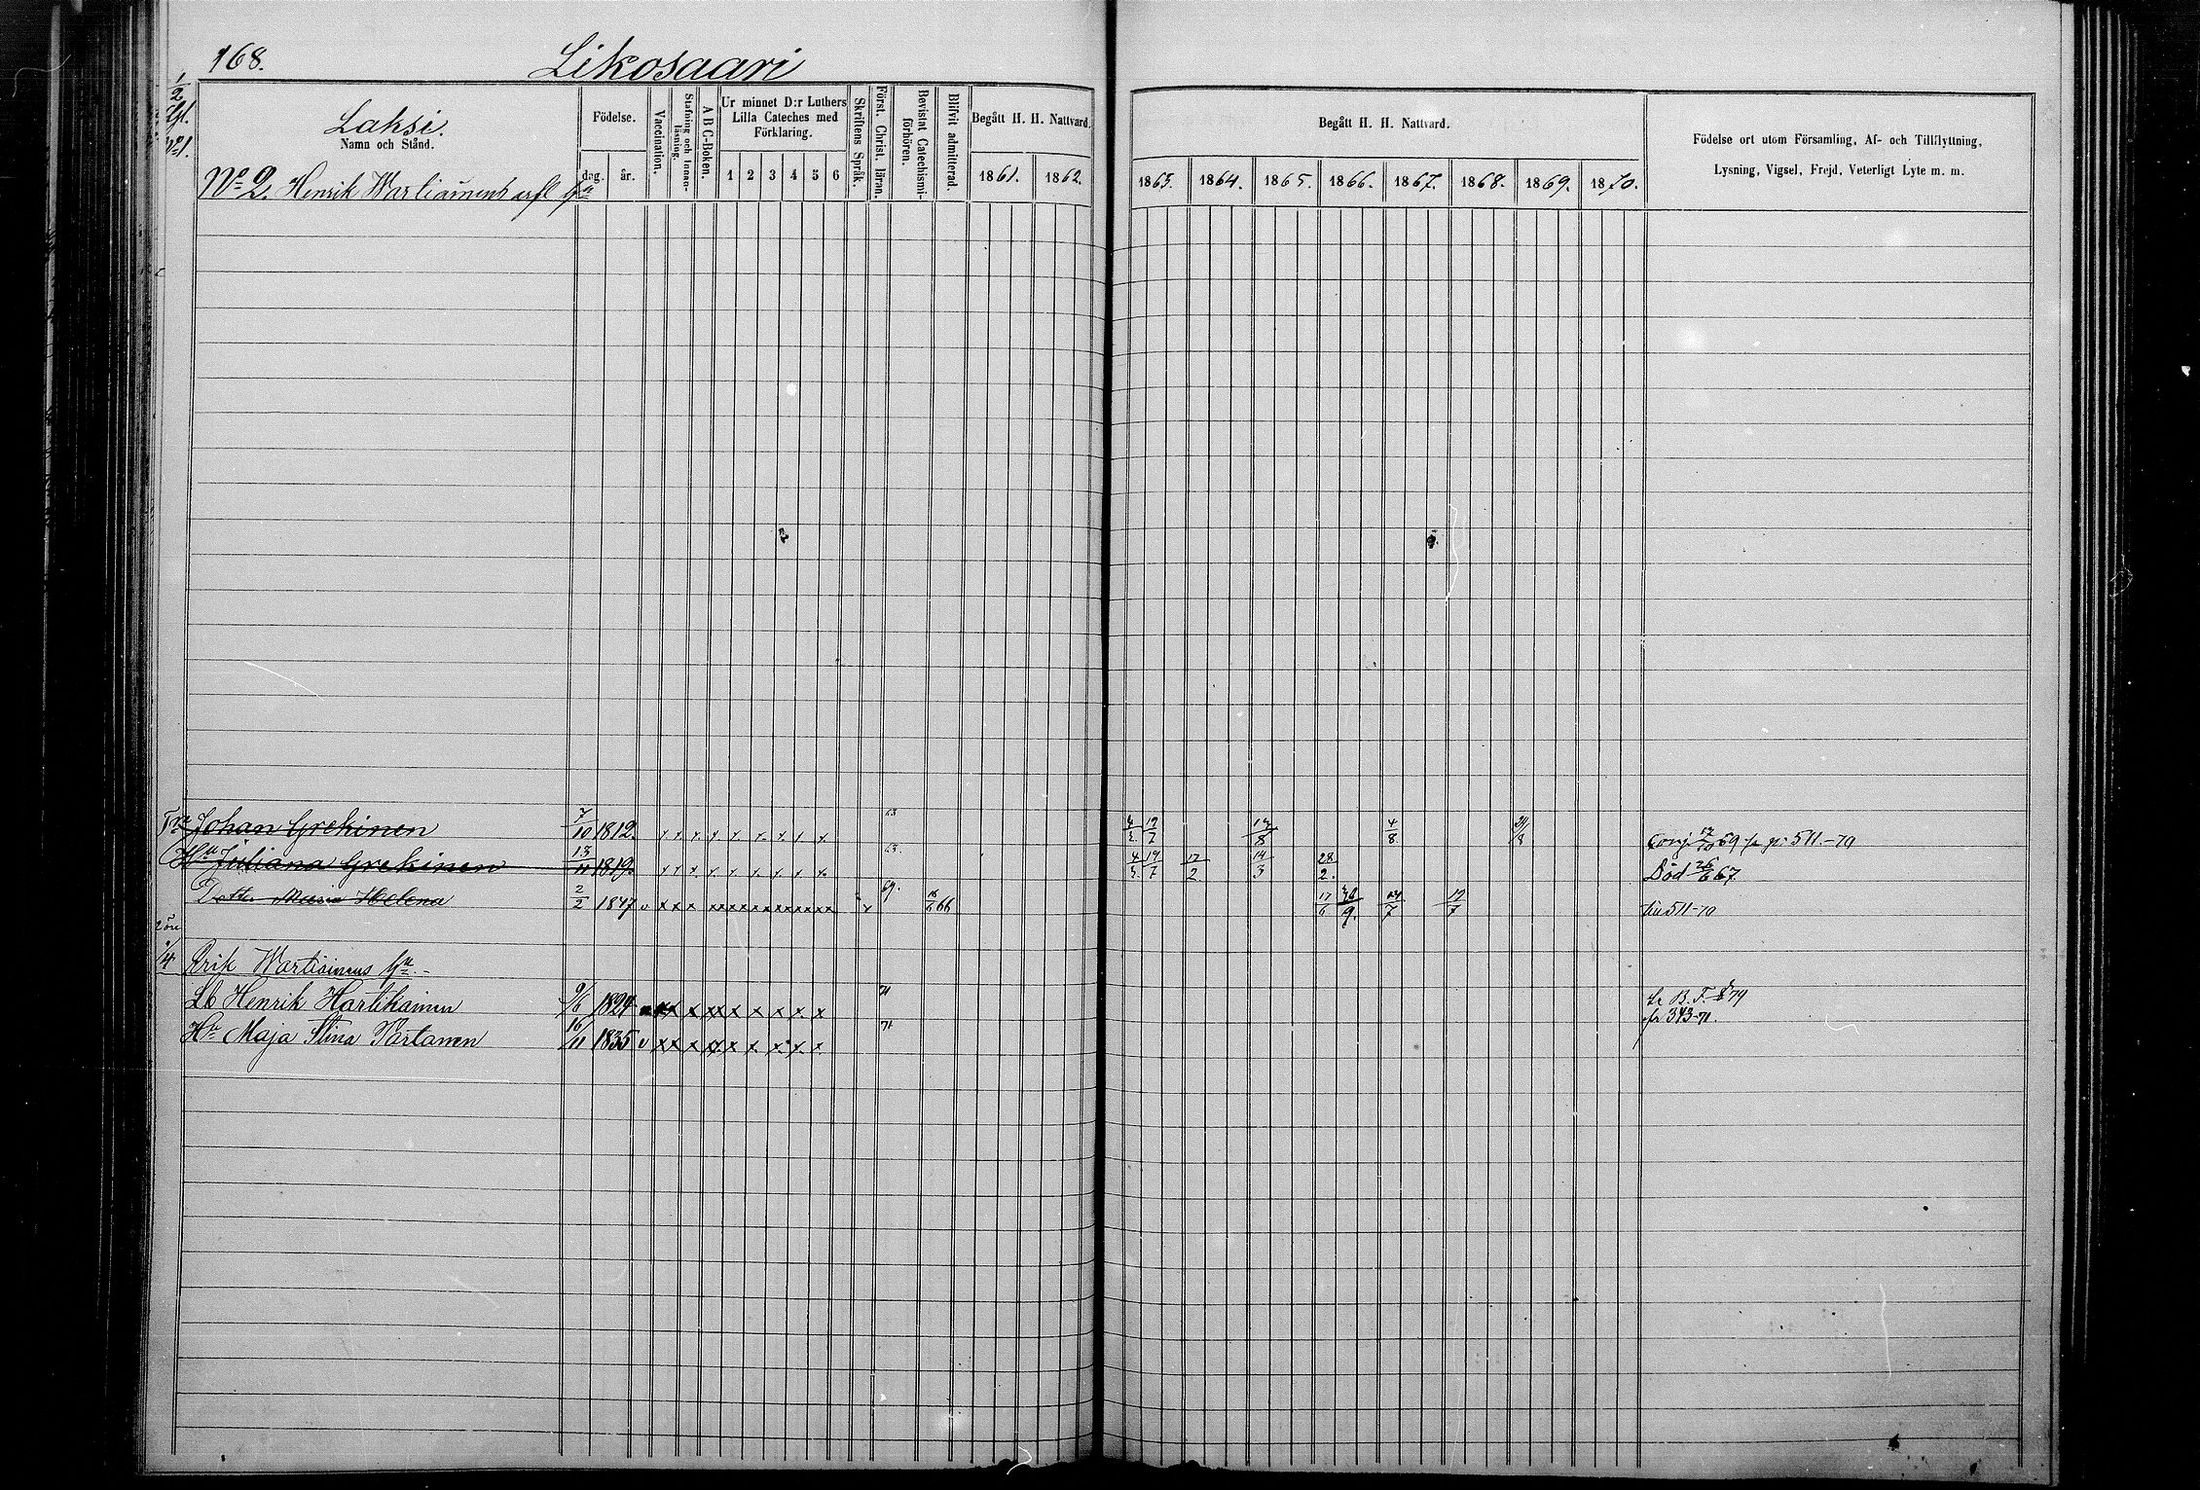 168.
Likosaari
1/2
No 1.
Laksi.
Namn och Stånd.
Födelse.
dag.
år.
Vaccination.
Stafning och Innan-läsning.
A B C-Boken.
Ur minnet D:r Luthers Lilla Cateches med Förklaring.
1 2 3 4 5 6
Skriftens Språk.
Först. Christ. läran.
Bevistat Catechismi-förhören.
Blifvit admitterad.
Begått H. H. Nattvard.
1861. 1862.
Begått H. H. Nattvard.
1863. 1864. 1865. 1866. 1867. 1868. 1869. 1870.
Födelse ort utom Församling, Af- och Tillflyttning,
Lysning, Vigsel, Frejd, Veterligt Lyte m. m.
No 2. Henrik
Johan Grekinen 7/10 1812. x x x x x x x x x 63 19/7 4/8 69 511-70
Hu Juliana Grekinen 13/11 1819. x x x x x x x x x 63 19/7 17/2 14/3 28/2. Död 26/6 67.
Dotter Maria Helena 2/2 1847 v x x x 69. 66 17/6 30/9. 17/7 511-70
Erik
Lb Henrik Hartikainen 9/6 1824 x x x x x x x 71 B. F. 79
fr 343-71.
Hu Maja Stina Partanen 16/11 1835 v x x x x x x x x x 71